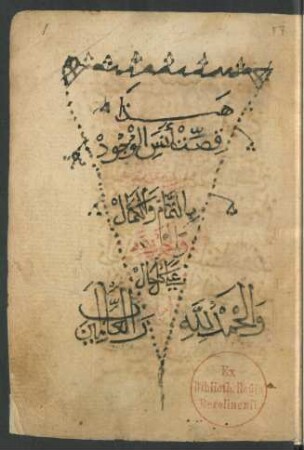 1
هذا
قصة أنس الوجود
بالتمام والكمال
والحمد لله
على كل حال
والحمد لله
رب العالمين
Ex
Bibliotheca Regia
Berolinensi